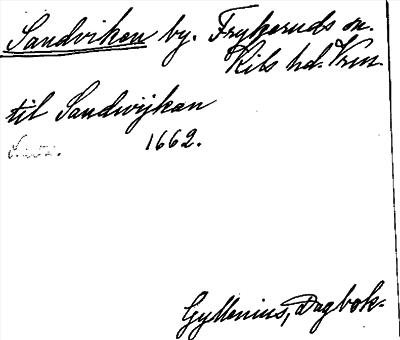 Sandviken by. Frykeruds sn.
Kils hd. Vrm.
til Sandwijkan
1662.
Gyllenius, Dagbok.